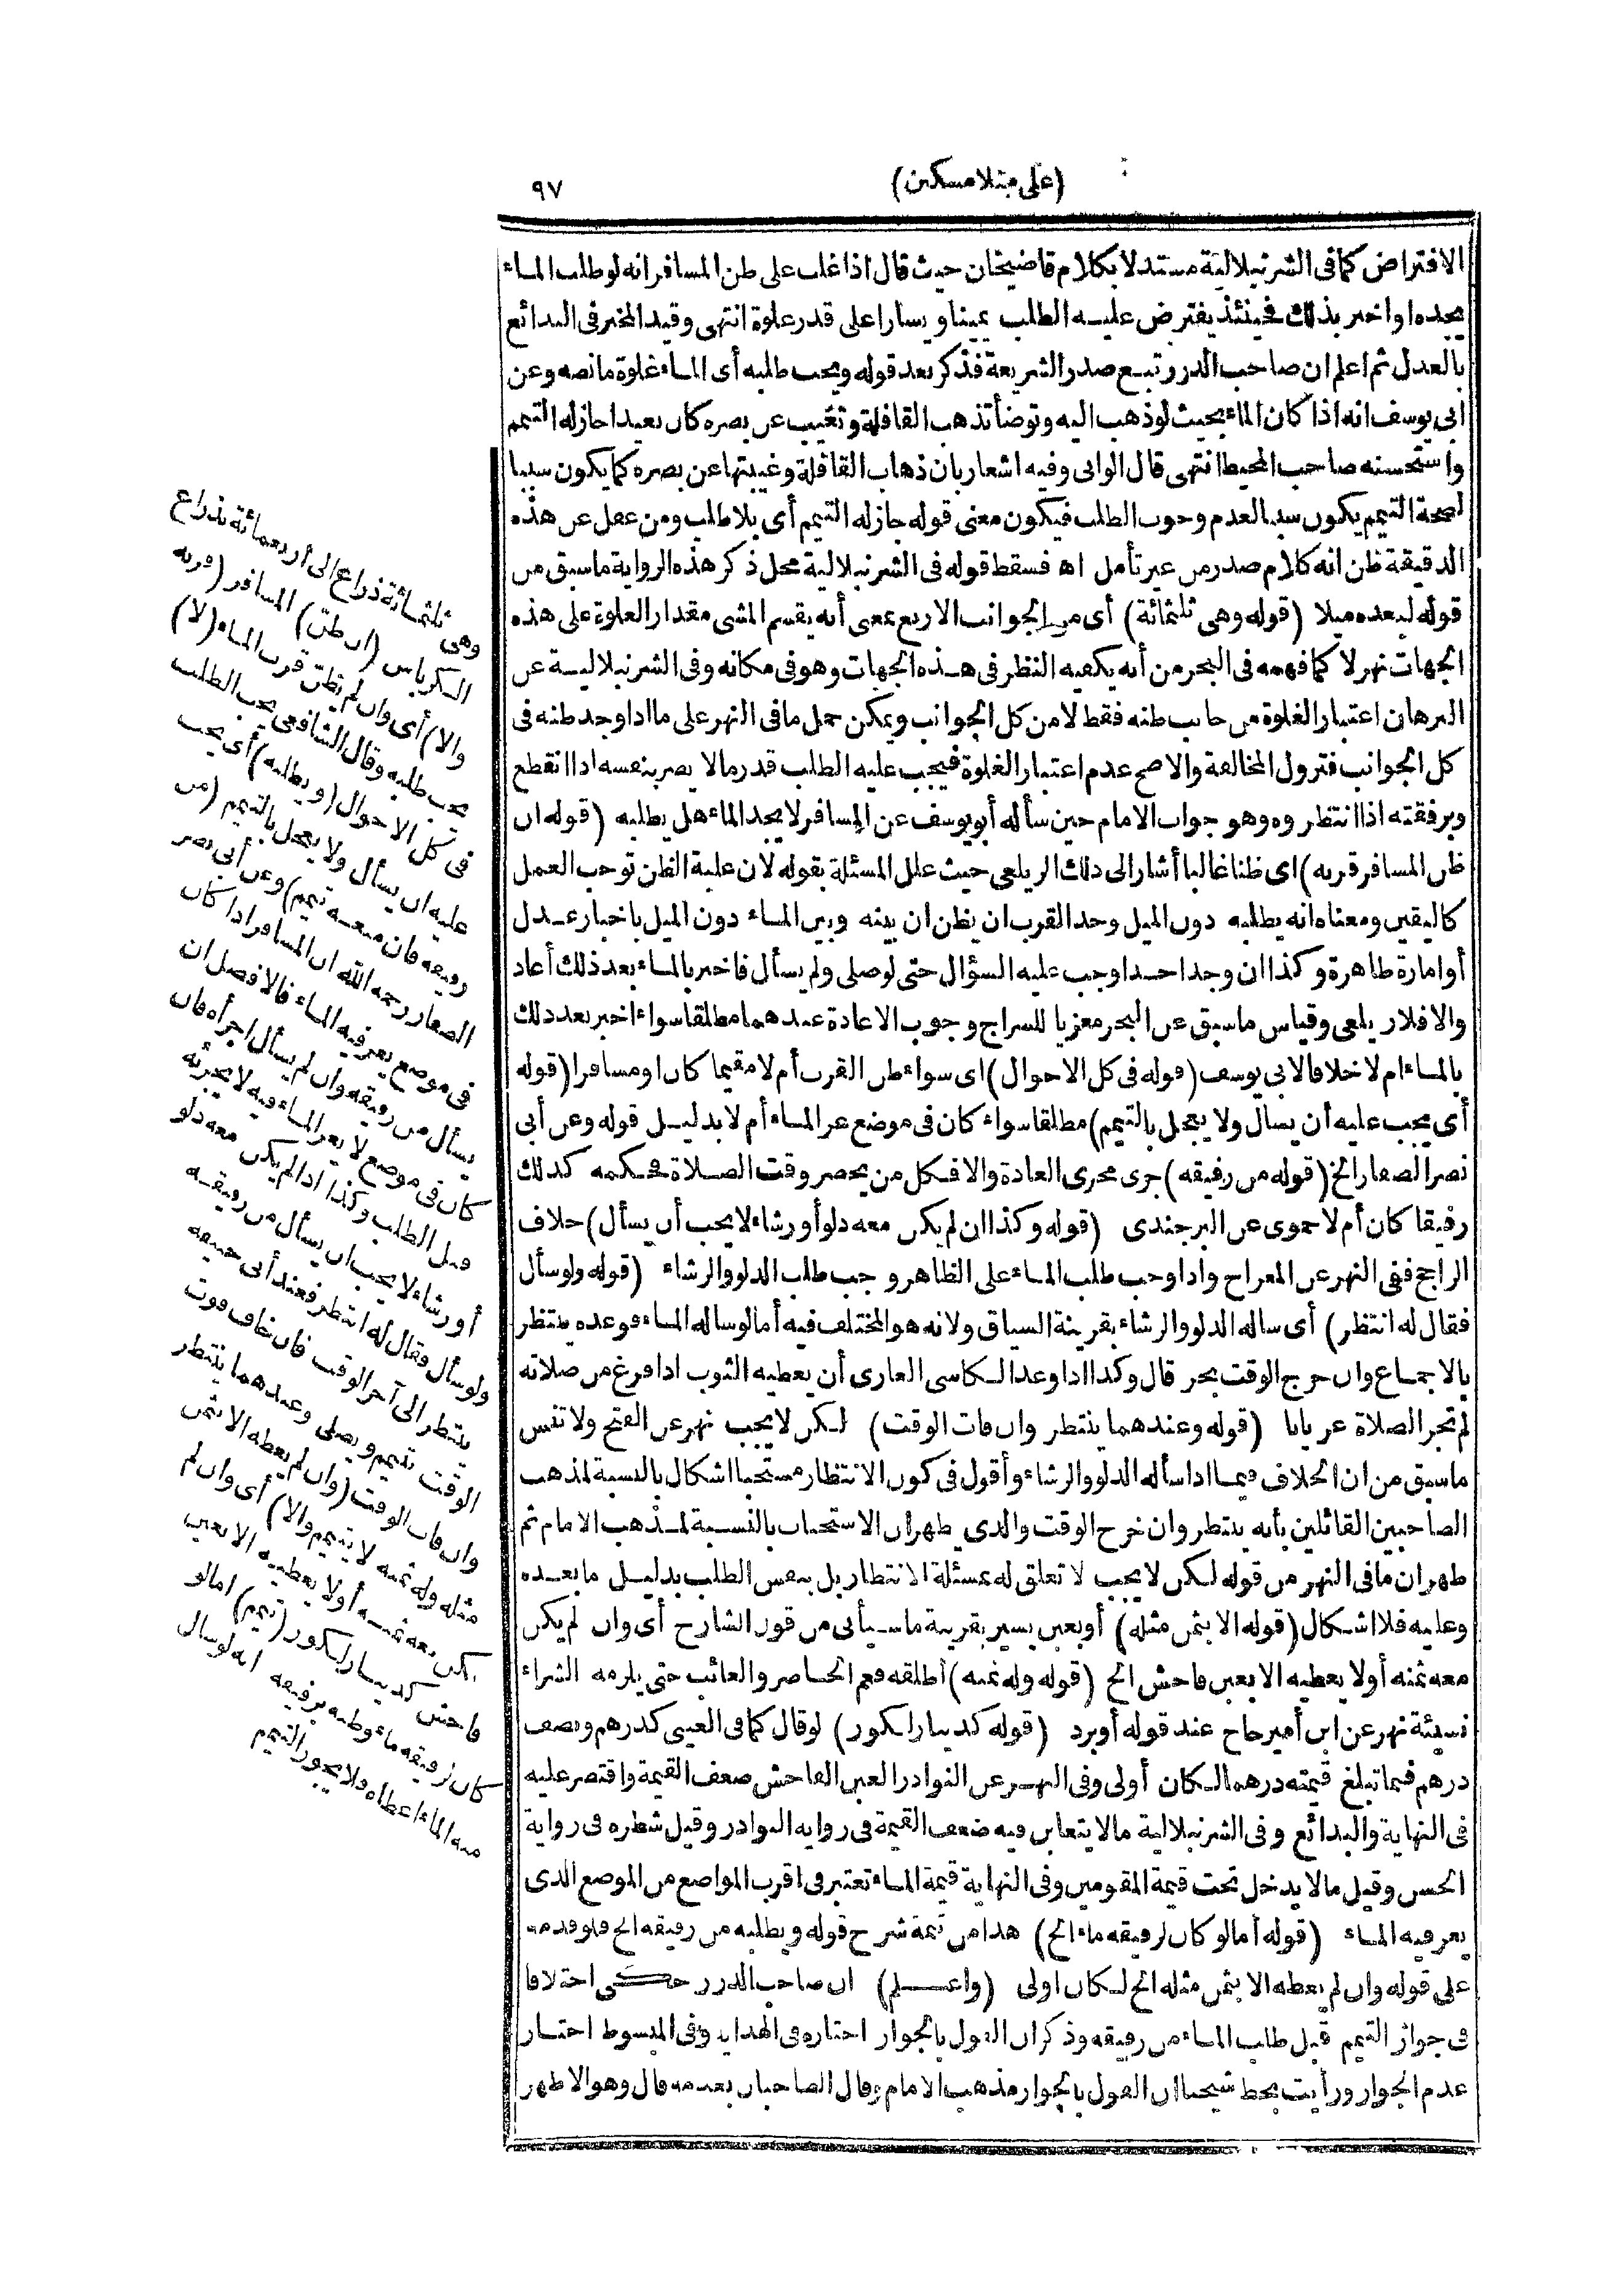 (على منلا مسكين)
٩٧
الافتراض كما فى الشرنبلالية مستدلا بكلام قاضيخان حيث قال اذا غلب على ظن المسافر انه لو طلب الماء
يجده او اخبر بذلك فحينئذ يفترض عليه الطلب يمينا ويسارا على قدر غلوة انتهى وقيد المخبر فى البدائع
بالعدل ثم اعلم ان صاحب الدرر تبع صدر الشريعة فذكر بعد قوله ويجب طلبه أى الماء غلوة ما نصه وعن
ابى يوسف انه اذا كان الماء بحيث لو ذهب اليه وتوضأ تذهب القافلة وتغيب عن بصره كان بعيدا جاز له التيمم
واستحسنه صاحب المحيط انتهى قال الوانى وفيه اشعار بان ذهاب القافلة وغيبتها عن بصره كما يكون سببا
لصحة التيمم يكون سببا لعدم وجوب الطلب فيكون معنى قوله جاز له التيمم أى بلا طلب ومن غفل عن هذه
الدقيقة ظن انه كلام صدر من غير تأمل اه فسقط قوله فى الشرنبلالية محل ذكر هذه الرواية ما سبق من
قوله لبعده ميلا (قوله وهى ثلثمائة) أى من الجوانب الاربع بمعنى أنه يقسم المشى مقدار الغلوة على هذه
الجهات نهر لا كما فهمه فى البحر من أنه يكفيه النظر فى هذه الجهات وهو فى مكانه وفى الشرنبلالية عن
البرهان اعتبار الغلوة من جانب ظنه فقط لا من كل الجوانب ويمكن حمل ما فى النهر على ما اذا وجد ظنه فى
كل الجوانب فتزول المخالفة والاصح عدم اعتبار الغلوة فيجب عليه الطلب قدر ما لا يضر بنفسه اذا انقطع
وبرفقته اذا انتظروه وهو جواب الامام حين سأله أبو يوسف عن المسافر لا يجد الماء هل يطلبه (قوله ان
ظن المسافر قربه) اى ظنا غالبا أشار الى ذلك الزيلعى حيث علل المسئلة بقوله لان غلبة الظن توجب العمل
كاليقين ومعناه انه يطلبه دون الميل وحد القرب ان يظن ان بينه وبين الماء دون الميل باخبار عدل
أو امارة ظاهرة وكذا ان وجد احدا وجب عليه السؤال حتى لو صلى ولم يسأل فاخبر بالماء بعد ذلك أعاد
والا فلا زيلعى وقياس ما سبق عن البحر معزيا للسراج وجوب الاعادة عندهما مطلقا سواء اخبر بعد ذلك
بالماء ام لا خلافا لابى يوسف (قوله فى كل الاحوال) اى سواء ظن القرب أم لا مقيما كان او مسافرا (قوله
أى يجب عليه أن يسأل ولا يعجل بالتيمم) مطلقا سواء كان فى موضع عز الماء أم لا بدليل قوله وعن أبى
نصر الصفار الخ (قوله من رفيقه) جرى مجرى العادة والا فكل من يحضر وقت الصلاة فحكمه كذلك
رفيقا كان أم لا حموى عن البرجندى (قوله وكذا ان لم يكن معه دلو أو رشاء لا يجب أن يسأل) خلاف
الراجح ففى النهر عن المعراج واذا وجب طلب الماء على الظاهر وجب طلب الدلو والرشاء (قوله ولو سأل
فقال له انتظر) أى سأله الدلو والرشاء بقرينة السياق ولانه هو المختلف فيه أما لو سأله الماء فوعده ينتظر
بالاجماع وان خرج الوقت بحر قال وكذا اذا وعد الكاسى العارى أن يعطيه الثوب اذا فرغ من صلاته
لم تجز الصلاة عريانا (قوله وعندهما ينتظر وان فات الوقت) لكن لا يجب نهر عن الفتح ولا تنس
ما سبق من ان الخلاف فيما اذا سأله الدلو والرشاء وأقول فى كون الانتظار مستحبا اشكال بالنسبة لمذهب
الصاحبين القائلين بأنه ينتظر وان خرج الوقت والذى ظهر ان الاستحباب بالنسبة لمذهب الامام ثم
ظهر ان ما فى النهر من قوله لكن لا يجب لا تعلق له بمسئلة الانتظار بل بنفس الطلب بدليل ما بعده
وعليه فلا اشكال (قوله الا بثمن مثله) أو بغبن يسير بقرينة ما سيأتى من قول الشارح أى وان لم يكن
معه ثمنه أو لا يعطيه الا بغبن فاحش الخ (قوله وله ثمنه) أطلقه فعم الحاضر والغائب حتى يلزمه الشراء
نسيئة نهر عن ابن أمير حاج عند قوله أو برد (قوله كدينار لكوز) لو قال كما فى العينى كدرهم ونصف
درهم فيما تبلغ قيمته درهما لكان أولى وفى النهر عن النوادر الغبن الفاحش ضعف القيمة واقتصر عليه
فى النهاية والبدائع وفى الشرنبلالية ما لا يتغابن فيه ضعف القيمة فى رواية النوادر وقيل شطره فى رواية
الحسن وقيل ما لا يدخل تحت قيمة المقومين وفى النهاية قيمة الماء تعتبر فى اقرب المواضع من الموضع الذى
يعز فيه الماء (قوله أما لو كان لرفيقه ماء الخ) هذا من تتمة شرح قوله ويطلبه من رفيقه الخ فلو قدمه
على قوله وان لم يعطه الا بثمن مثله الخ لكان اولى (واعلم) ان صاحب الدرر حكى اختلافا
فى جواز التيمم قبل طلب الماء من رفيقه وذكر ان القول بالجواز اختاره فى الهداية وفى المبسوط اختار
عدم الجواز ورأيت بخط شيخنا ان القول بالجواز مذهب الامام وقال الصاحبان بعدمه قال وهو الاظهر
وهى ثلثمائة ذراع الى أربعمائة بذراع
الكرباس (ان ظن) المسافر (قربه
والا) أى وان لم يظن قرب الماء (لا)
يجب طلبه وقال الشافعى يجب الطلب
فى كل الاحوال (ويطلبه) أى يجب
عليه ان يسأل ولا يعجل بالتيمم (من
رفيقه فان منعه تيمم) وعن أبى نصر
الصفار رحمه الله ان المسافر اذا كان
فى موضع يعز فيه الماء فالافضل ان
يسأل من رفيقه وان لم يسأل اجزأه فان
كان فى موضع لا يعز الماء فيه لا يجزئه
قبل الطلب وكذا اذا لم يكن معه دلو
أو رشاء لا يجب ان يسأل من رفيقه
ولو سأل وقال له انتظر فعند أبى حنيفة
ينتظر الى آخر الوقت فان خاف فوت
الوقت تيمم ويصلى وعندهما ينتظر
وان فات الوقت (وان لم يعطه الا بثمن
مثله وله ثمنه لا يتيمم والا) أى وان لم
يكن معه ثمنه أو لا يعطيه الا بغبن
فاحش كدينار لكوز (تيمم) اما لو
كان لرفيقه ماء وظنه برفيقه انه لو سأل
منه الماء اعطاه ولا يجوز التيمم